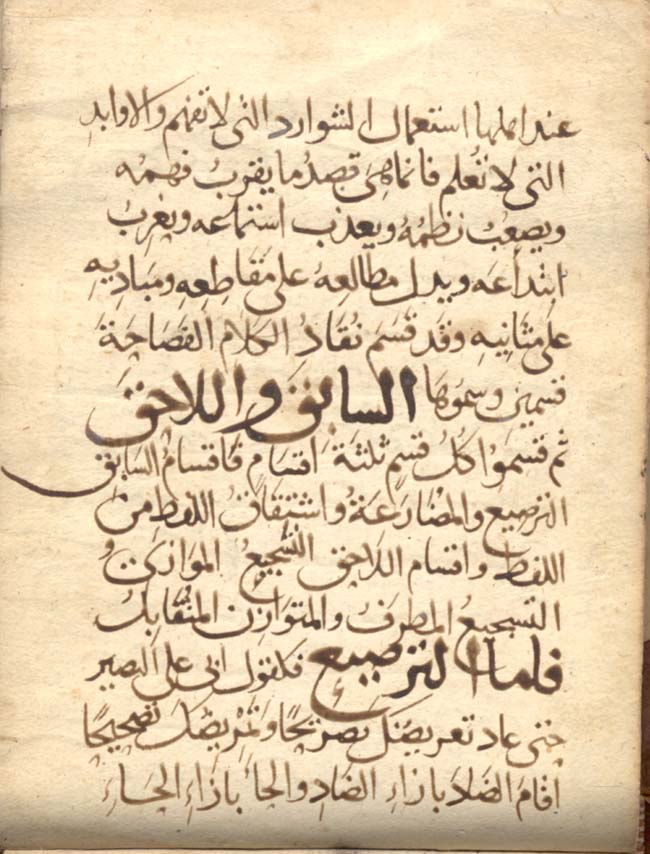 عند اهلها استعمال الشوارد التى لا تفهم والاوابد
التى لا تُعلم فانما هى قصدُ ما يقرب فهمه
ويصعُبُ نظمُهُ ويعذب استماعه ويغربُ
ابتداعَه ويدل مطالعِهُ على مَقاطِعِهِ ومَباديهِ
على مثانيهِ وقد قسَمَ نقادُ الكلام الفَصَاحَةَ
قسمين وسموها السابق واللاحق
ثم قسموا كُلَّ قسمٍ ثلثة اقسام فاقسامُ السابق
الترصيع والمضارعَةُ واشتقاقُ اللفظِ من
اللفظ واقسام اللاحق التسجيعُ الموازى
التسجيعُ المطرفُ والمتوازن المتقابلُ
فاما الترصيع فكقول ابى على البصير
حتى عاد تعريضُكَ تصريحًا وتمريضُكَ تصحيحًا
اقام الضادَ بازاءِ الصادِ والحاء بازاءِ الحاءِ